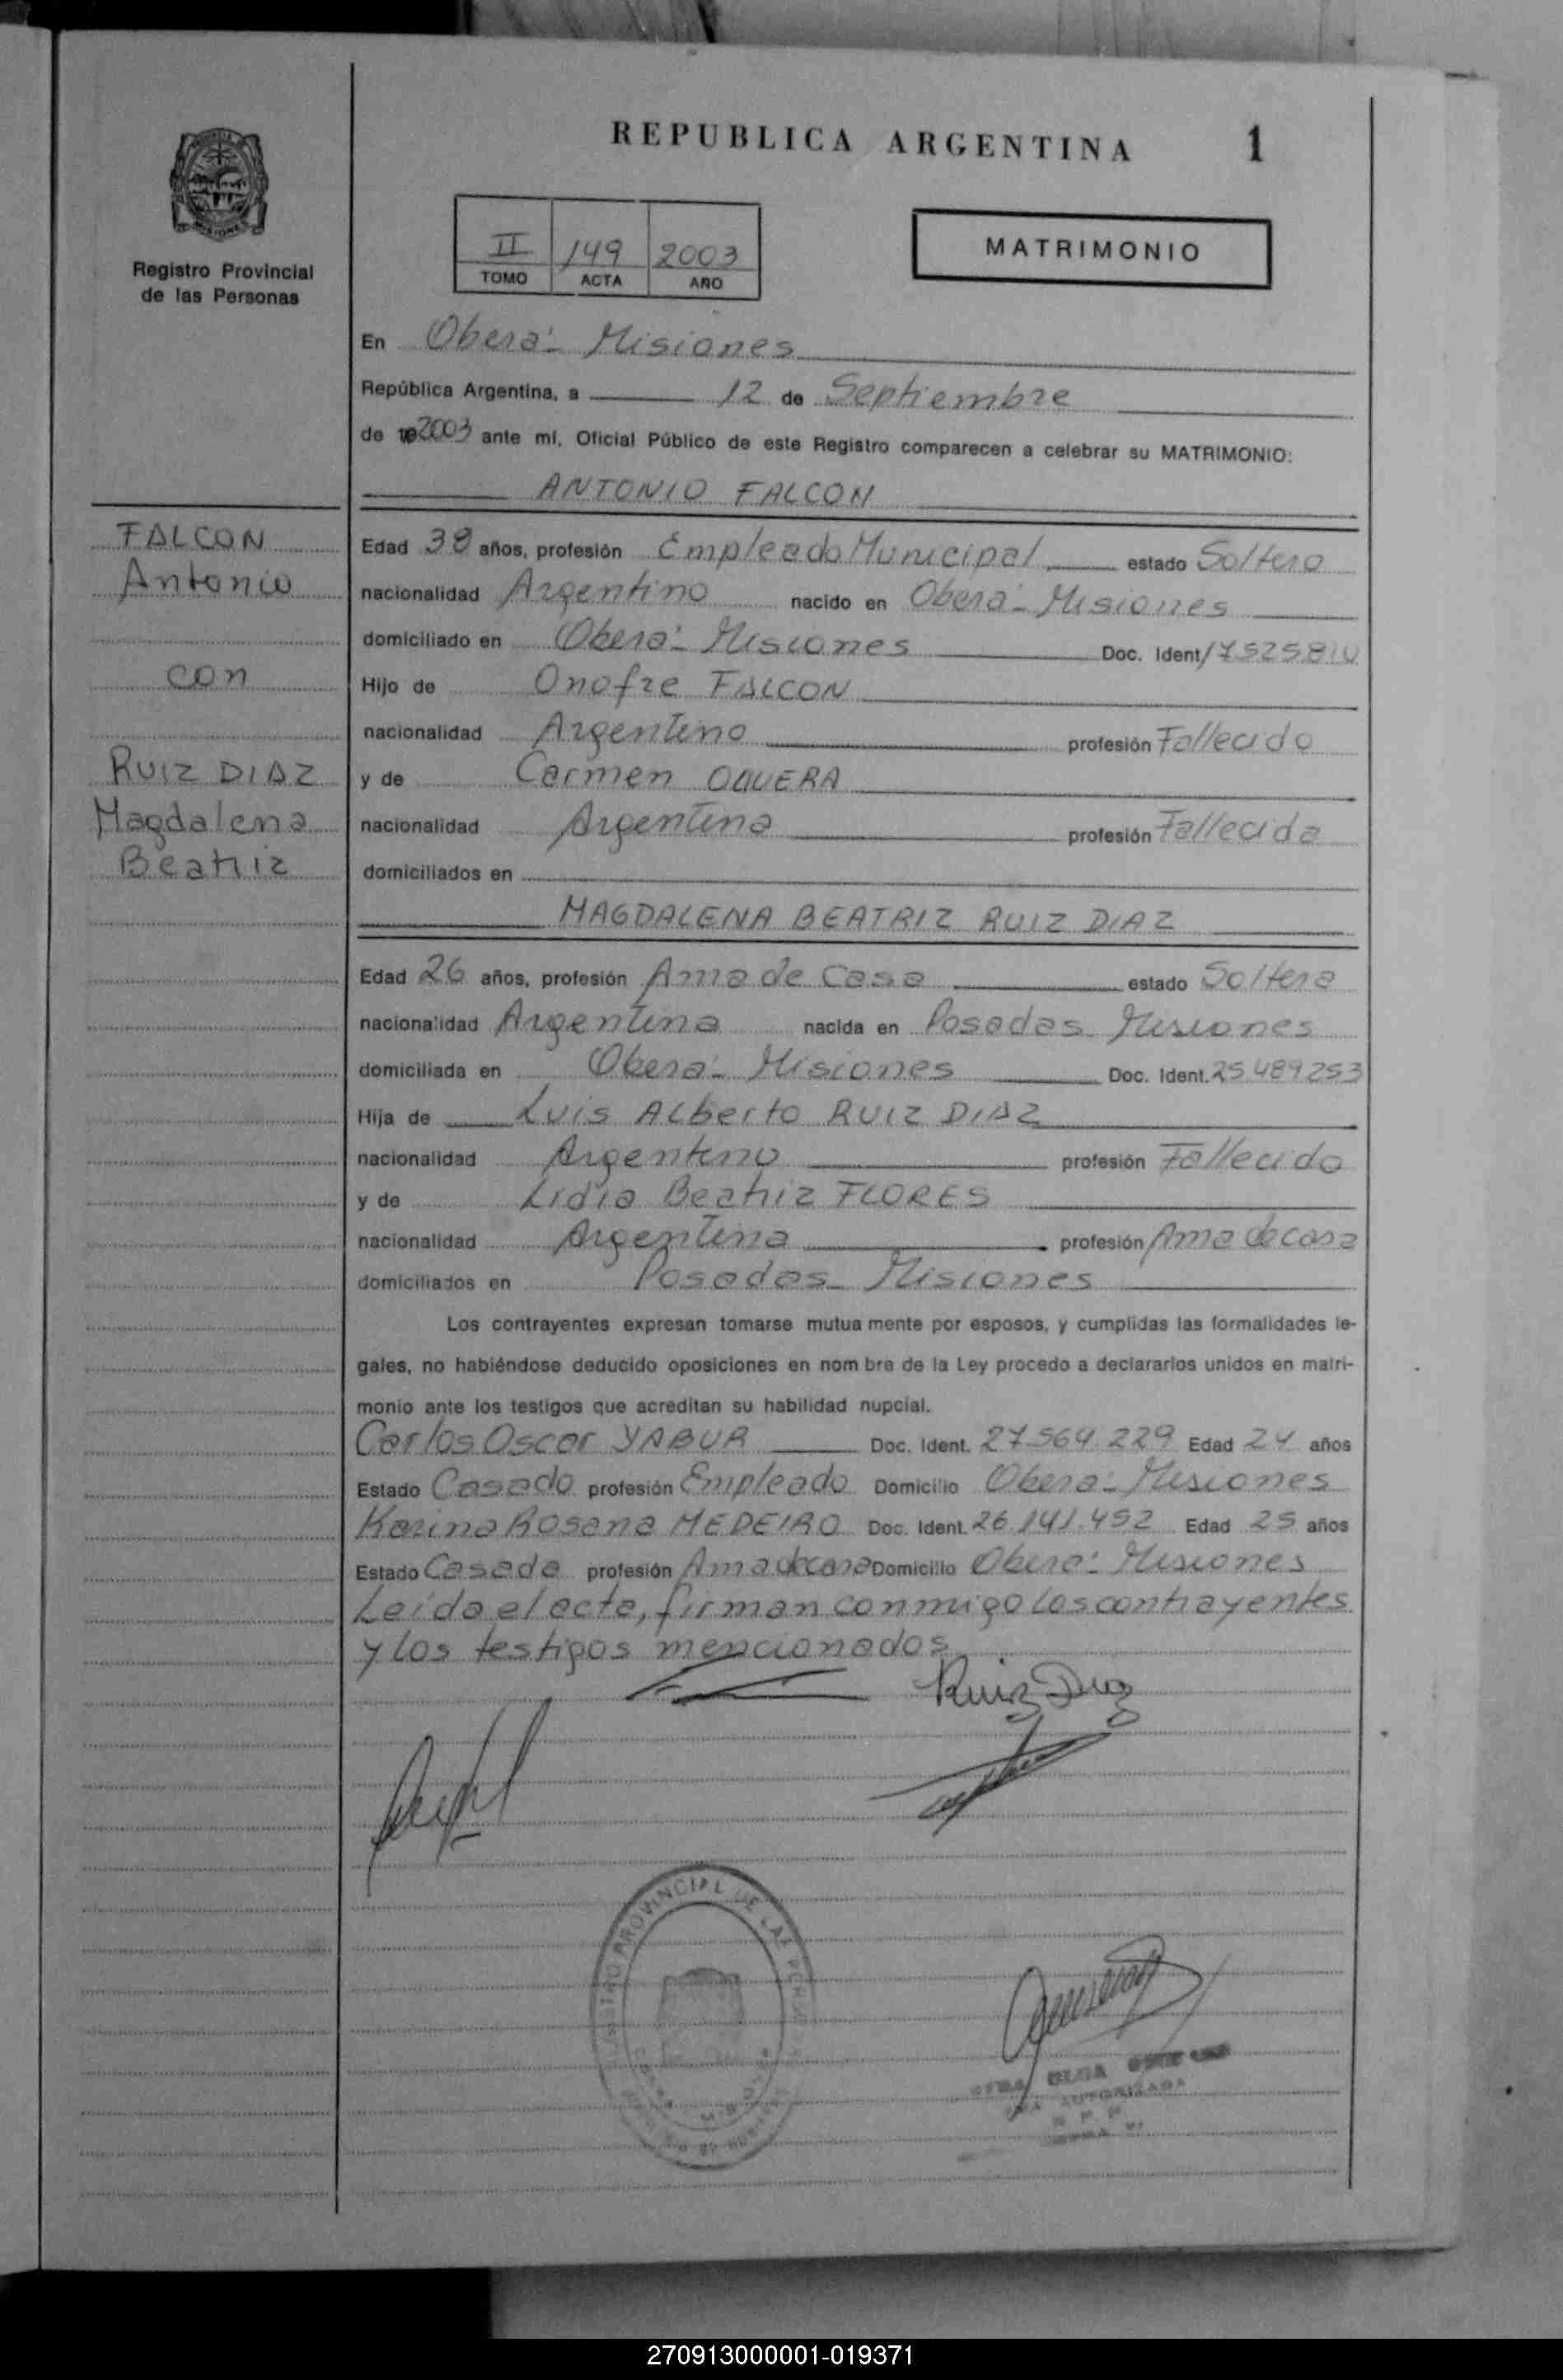 REPUBLICA ARGENTINA 1
Registro Provincial
de las Personas
II 149 2003
TOMO ACTA AÑO
MATRIMONIO
En Oberá - Misiones
República Argentina, a 12 de Septiembre
de 2003 ante mí, Oficial Público de este Registro comparecen a celebrar su MATRIMONIO:
ANTONIO FALCON
FALCON
Antonio
con
RUIZ DIAZ
Magdalena
Beatriz
Edad 38 años, profesión Empleado Municipal estado Soltero
nacionalidad Argentino nacido en Oberá - Misiones
domiciliado en Oberá - Misiones Doc. Ident.
Hijo de Onofre FALCON
nacionalidad Argentino profesión Fallecido
y de Carmen
nacionalidad Argentina profesión Fallecida
domiciliados en
MAGDALENA BEATRIZ RUIZ DIAZ
Edad 26 años, profesión Ama de Casa estado Soltera
nacionalidad Argentina nacida en Posadas - Misiones
domiciliada en Oberá - Misiones Doc. Ident. 25.489.253
Hija de Luis Alberto RUIZ DIAZ
nacionalidad Argentino profesión Fallecido
y de Lidia Beatriz FLORES
nacionalidad Argentina profesión Ama de casa
domiciliados en Posadas - Misiones
Los contrayentes expresan tomarse mutua mente por esposos, y cumplidas las formalidades le-
gales, no habiéndose deducido oposiciones en nom bre de la Ley procedo a declararlos unidos en matri-
monio ante los testigos que acreditan su habilidad nupcial.
Carlos Oscar YABUR Doc. Ident. 27.564.229 Edad 24 años
Estado Casado profesión Empleado Domicilio Oberá - Misiones
Karina Rosana MEDEIRO Doc. Ident. 26.141.452 Edad 25 años
Estado Casada profesión Ama de casa Domicilio Oberá - Misiones
Leída el acta, firman conmigo los contrayentes
y los testigos mencionados
Ruiz Diaz
PROVINCIAL DE LAS
OLGA
AUTORIZADA
270913000001-019371